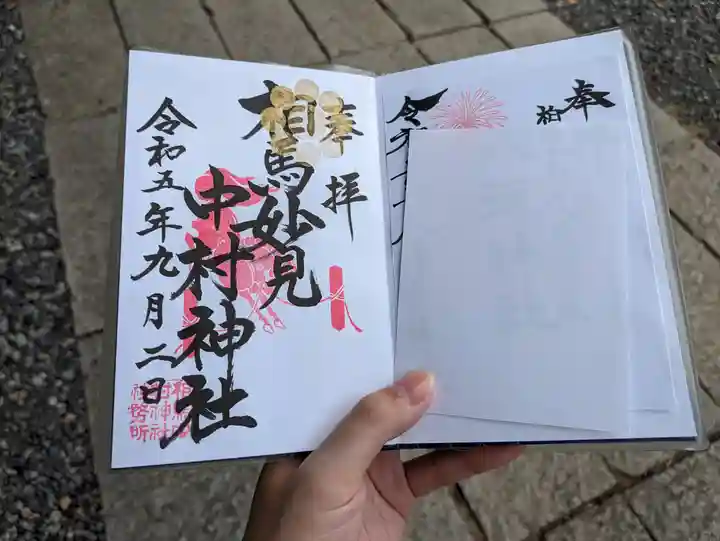 奉拝
相馬妙見
中村神社
令和五年九月二日
奉